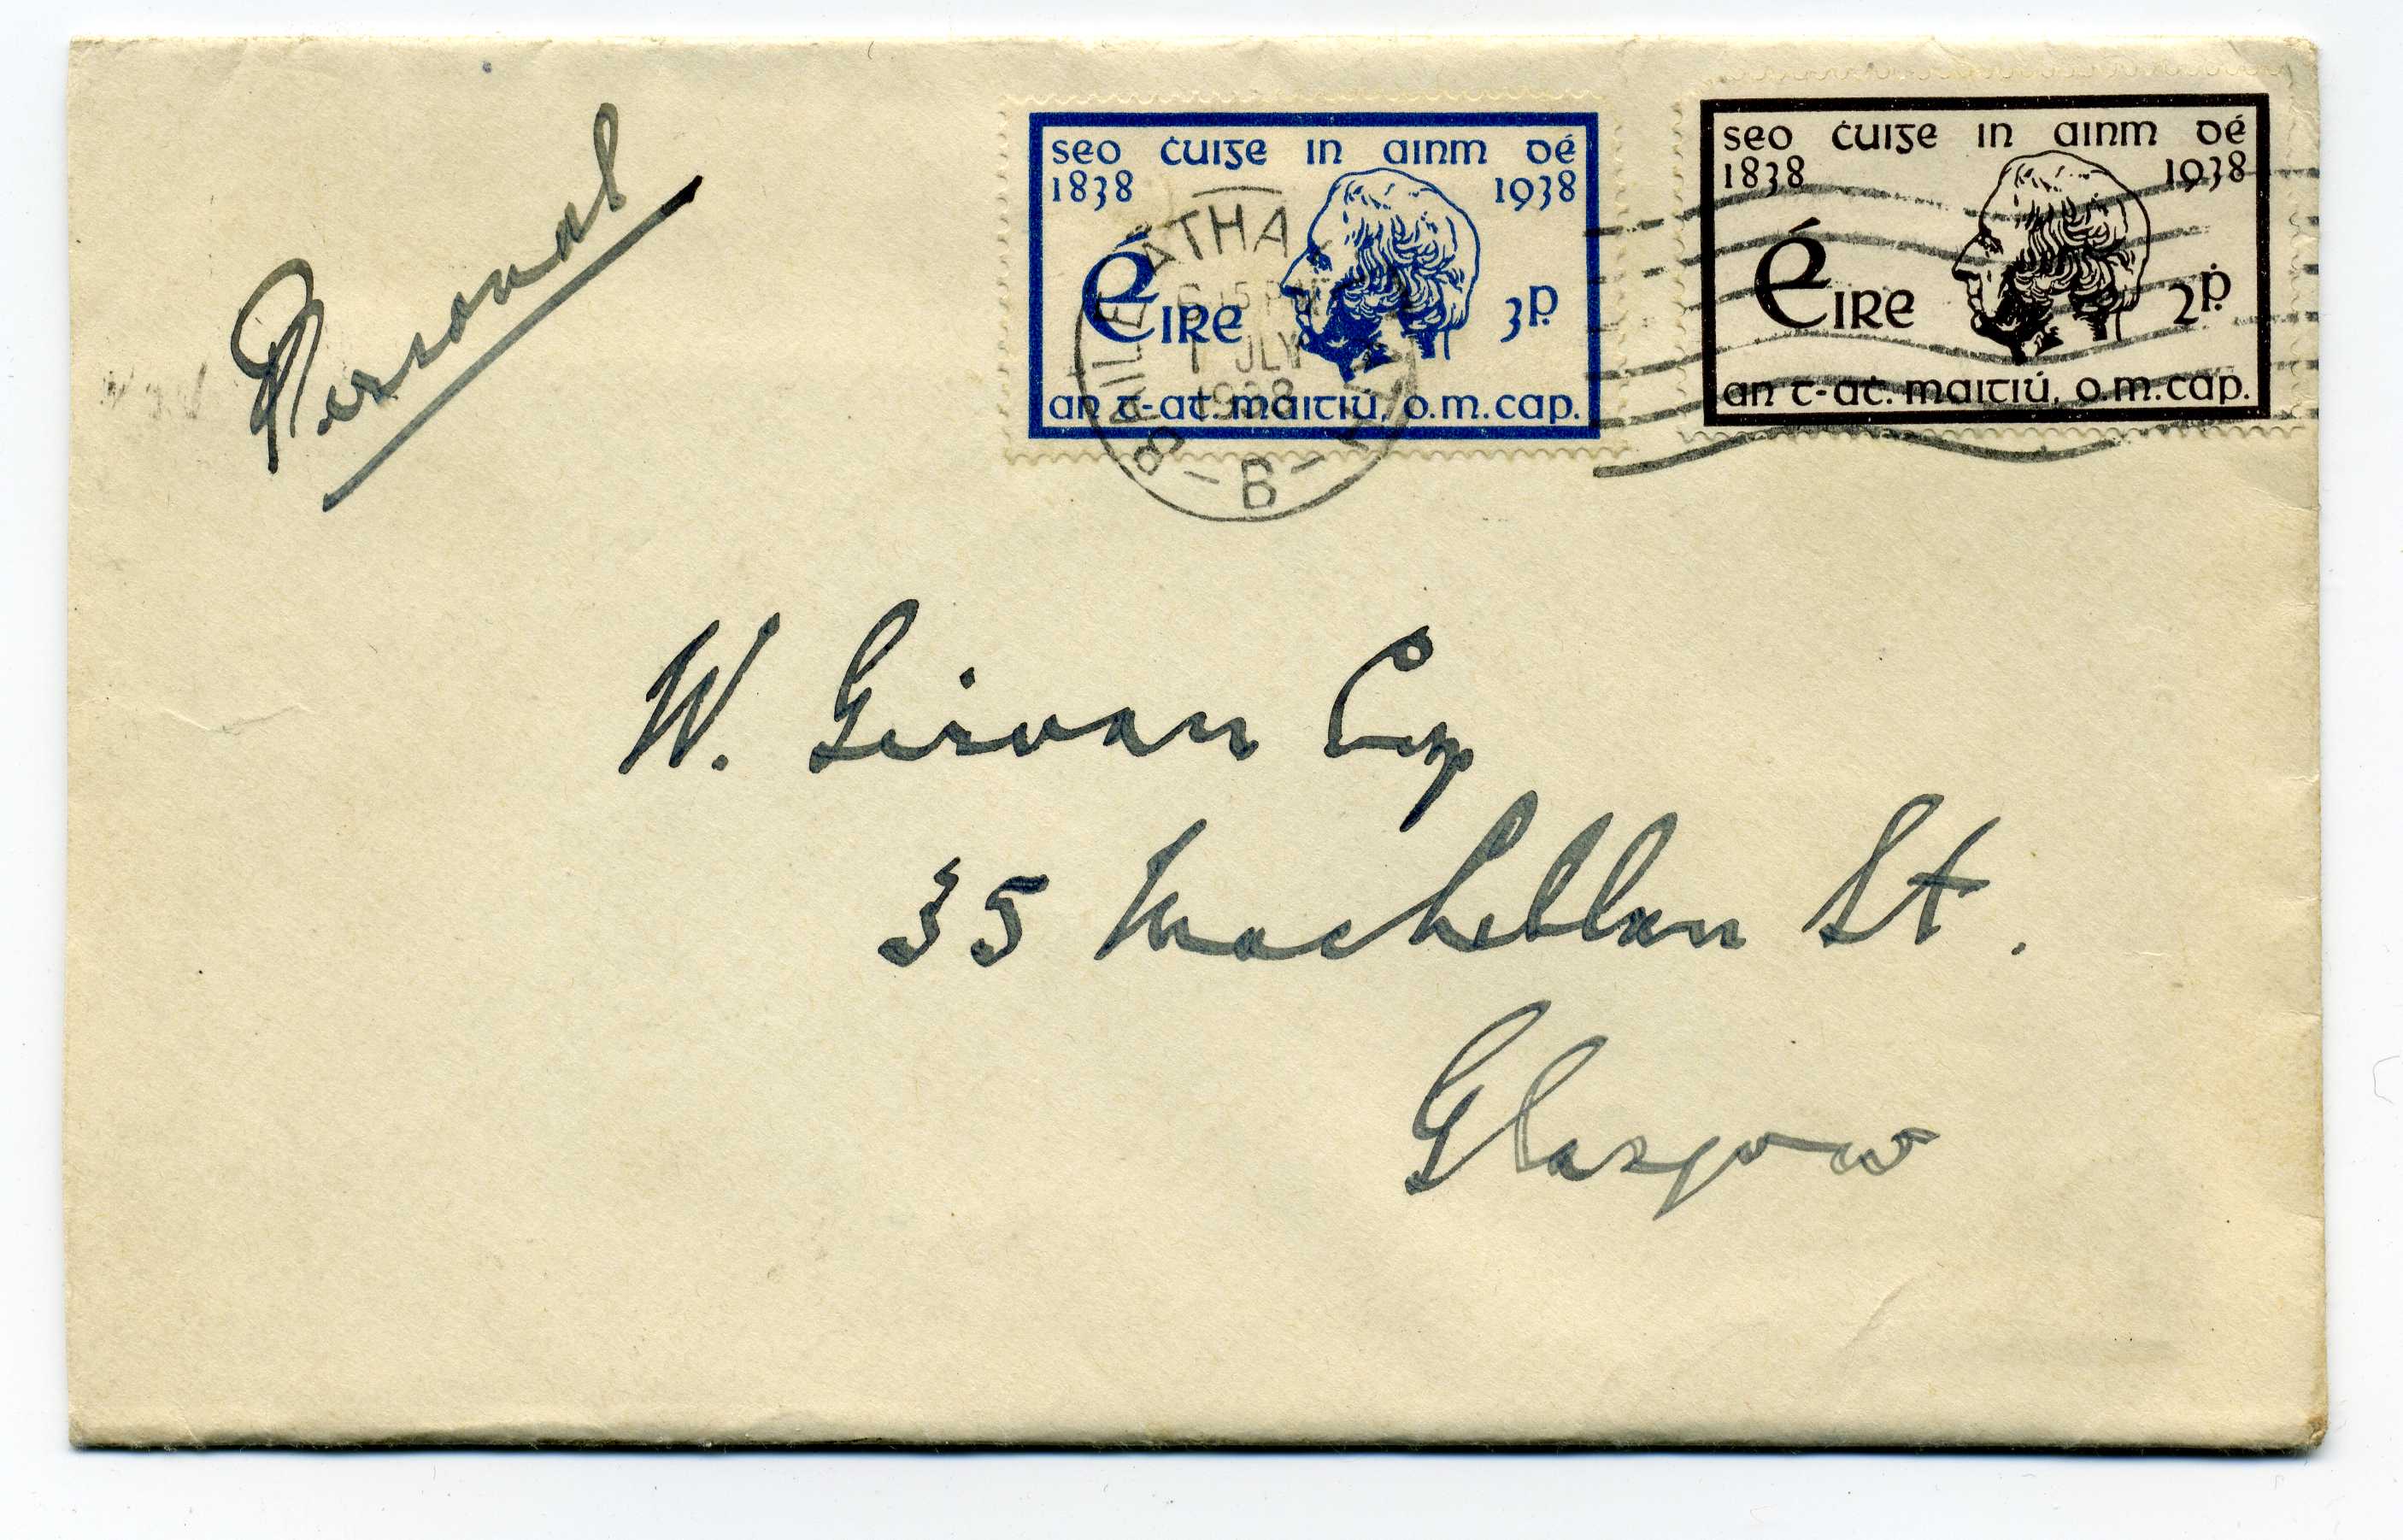 Personal
seo ċuige in ainm dé
1838 1938
Éire 3p.
an t-at. maitiú, o.m.cap.
seo ċuige in ainm dé
1838 1938
Éire 2p.
an t-at. maitiú, o.m.cap.
BAILE ATHA
6 15 PM
1 JLY
1938
B
W. Girvan Esq
35 MacLellan St.
Glasgow